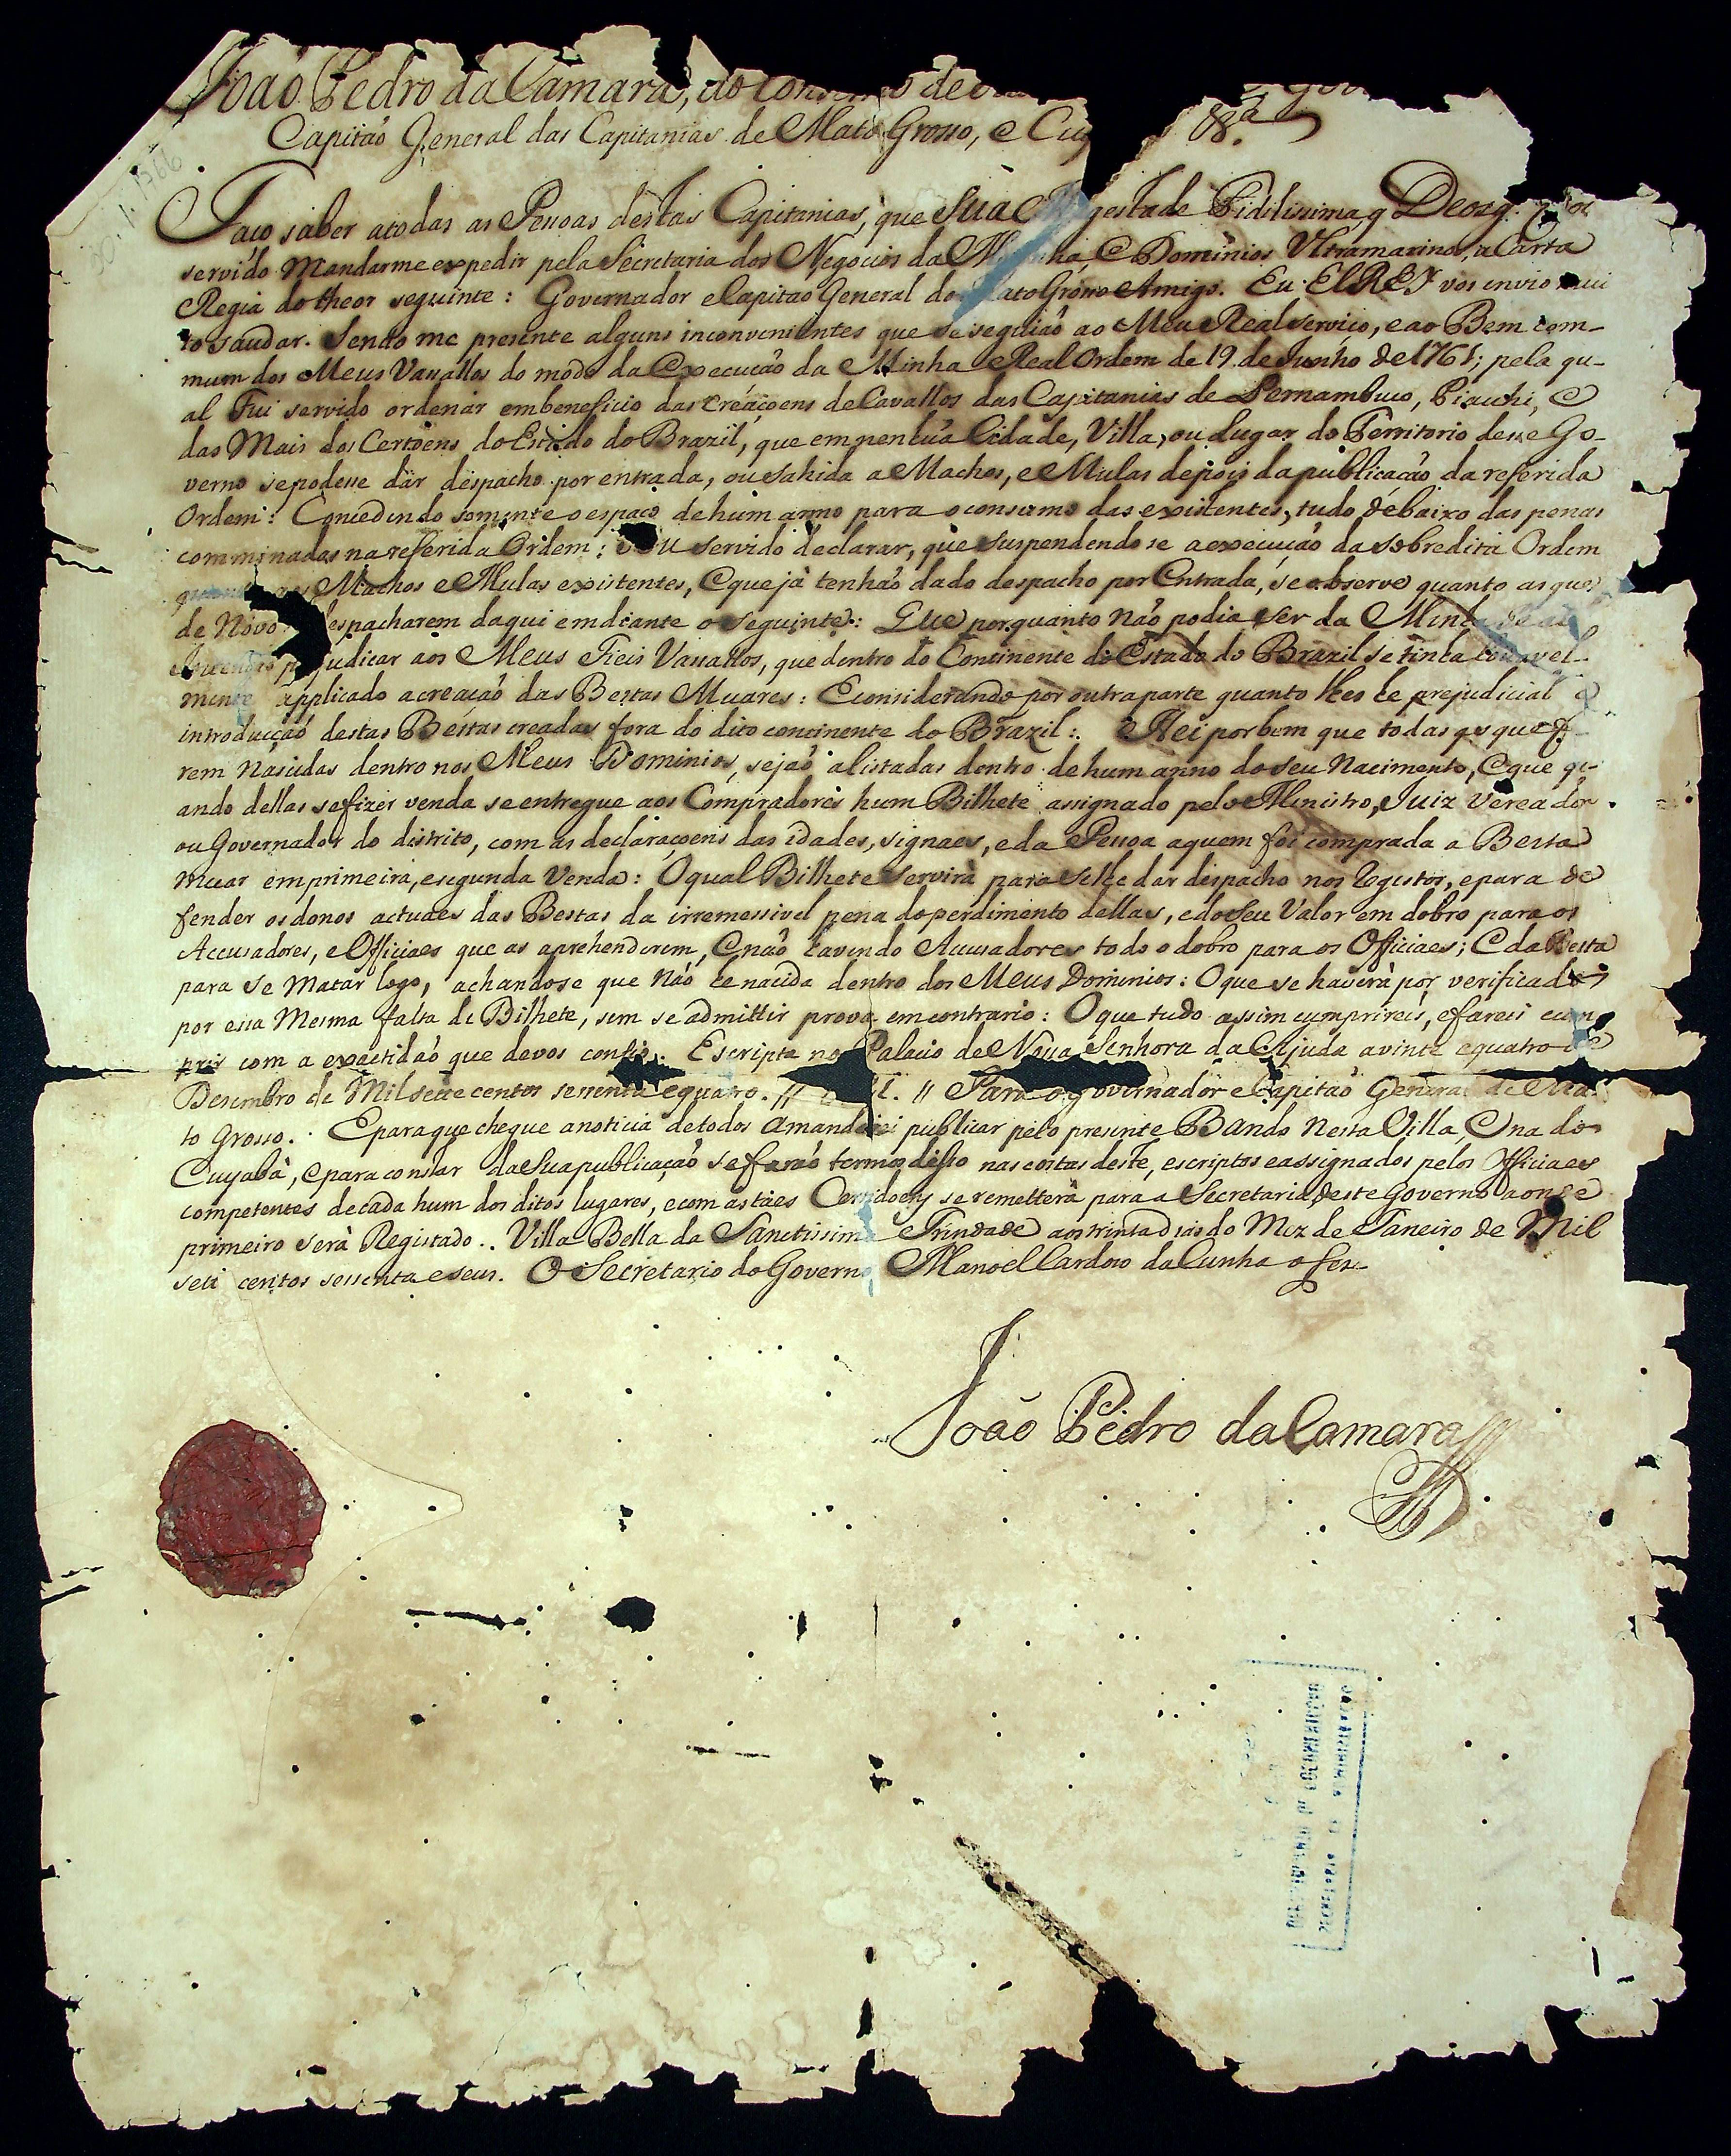 João Pedro da Camara, do
Capitão General das Capitanias de Mato Grosso, e &ª.
Faço saber atodas as Pessoas destas Capitanias, que Sua gestade Fidilissima q Deos g.
servido Mandarme expedir pela Secretaria dos Negocios da e Dominios Vltramarinos, a Carta
Regia do theor seguinte: Governador eCapitao General do ato Grosso Amigo. Eu ElREY vos envio mui
to saudar. Sendo me presente alguns inconvenientes que se seguiaõ ao Meu Real serviço, e ao Bem com-
mum dos Meus Vassallos do modo da Execuçaõ da Minha Real Ordem de 19. de Junho de 1761; pela qu-
al Fui servido ordenar em beneficio das Creaçoens de Cavallos das Capitanias de Pernambuco, Piauhi, e
das Mais dos Certoens do Estado do Brazil, que em nenhũa Cidade, Villa, ou Lugar do Territorio desse Go-
verno sepodesse dar despacho por entrada, ou sahida a Machos, e Mulas depois da publicaçaõ da referida
Ordem: Concedendo somente o espaço de hum anno para o consumo das existentes, tudo debaixo das penas
comminadas na referida Ordem: servido declarar, que suspendendose a execuçaõ da sobredita Ordem
Machos e Mulas existentes, e que jà tenhaõ dado despacho por Entrada, se observe quanto as que
de Novo espacharem daqui em diante o seguinte: Que por quanto naõ podia ser da Minha
judicar aos Meus Fieis Vassallos, que dentro do Continente do Estado do Brazil se tinha
mente applicado a creaçaõ das Bestas Muares: E considerando por outra parte quanto lhes he prejudicial a
introducçaõ destas Bestas creadas fora do dito continente do Brazil: Hei por bem que todas as que f
rem Nascidas dentro nos Meus Dominios, sejaõ alistadas dentro de hum anno do seu Nacimento, e que qu-
ando dellas sefizer venda se entregue aos Compradores hum Bilhete assignado pelo Ministro, Juiz Vereador
ou Governador do distrito, com as declaraçoens das idades, signaes, e da Pessoa aquem foi comprada a Besta
muar em primeira, e segunda Venda: O qual Bilhete servirà para selhe dar despacho nos Registos, e para de
fender os donos actuaes das Bestas da irremessivel pena do perdimento dellas, e do seu Valor em dobro para os
Accusadores, e Officiaes que as aprehenderem, e naõ havendo Accusadores todo o dobro para os Officiaes; e da Besta
para se Matar logo, achandose que Naõ he nacida dentro dos Meus Dominios: O que se haverà por verificado
por essa Mesma falta de Bilhete, sem se admittir prova em contrario: O que tudo assim cumprireis, e fareis cum
prir com a exactidaõ que devos confio. Escripta no Palacio de Nossa Senhora da Ajuda a vinte e quatro de
Desembro de Mil sette centos sessenta e quatro. // // Para o governador e Capitaõ General de Ma
to Grosso. E para que chegue a noticia de todos a mandei publicar pelo presente Bando Nesta Villa, e na do
Cuyabà, e para constar da Sua publicaçaõ se faraõ termos disso nas costas deste, escriptos e assignados pelos Officiaes
competentes de cada hum dos ditos lugares, e com as taes Certidoens se remetterà para a Secretaria deste Governo aonde
primeiro serà Registado. Villa Bella da Sanctissima Trindade aos trinta dias do Mez de Janeiro de Mil
sete centos sessenta e seis. O Secretario do Governo Manoel Cardoso da Cunha o fes
João Pedro da Camara